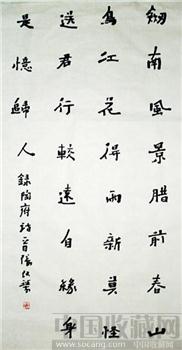 劔南風景腊前春山
鳥江花得雨新莫怪
送君行較遠自緣身
是憶歸人 錄陶雍詩
中国收藏网
www.socang.com